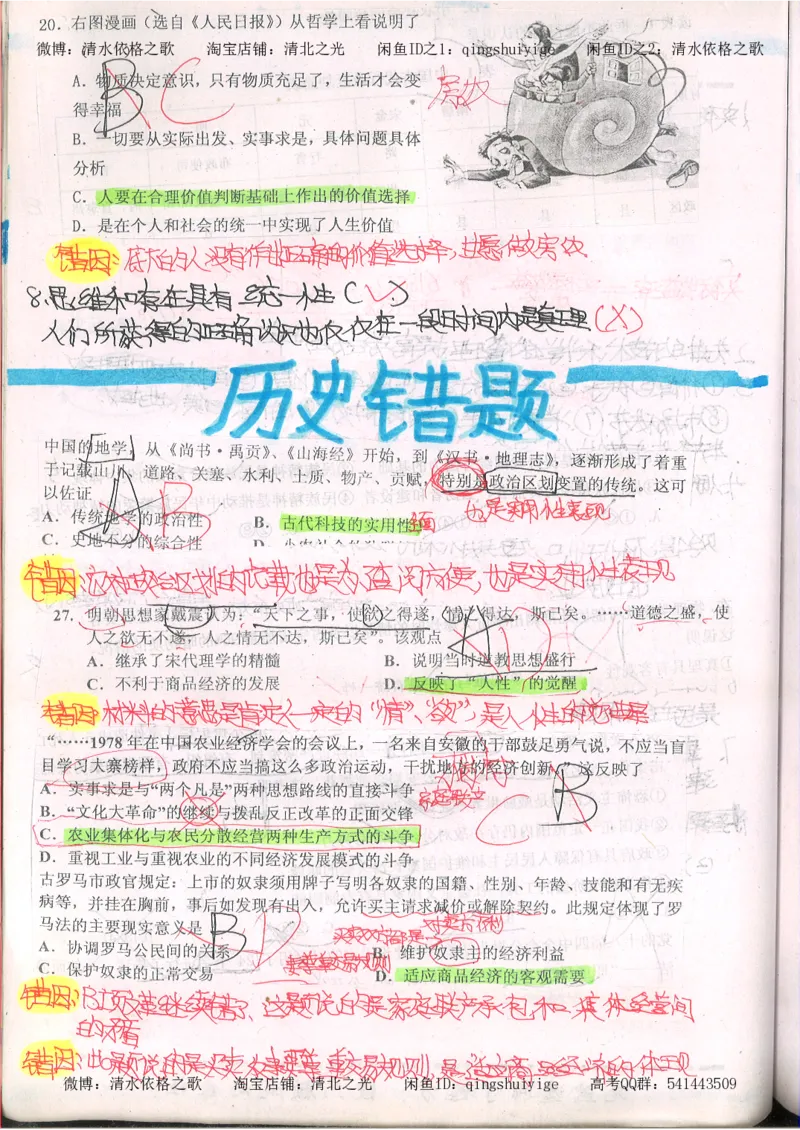 20. 右图漫画（选自《人民日报》）从哲学上看说明了
微博：清水依格之歌 淘宝店铺：清北之光 闲鱼ID之1：qingshuiyige 闲鱼ID之2：清水依格之歌
A. 物质决定意识，只有物质充足了，生活才会变
得幸福
B C
房奴
B. 一切要从实际出发、实事求是，具体问题具体
分析
C. 人要在合理价值判断基础上作出的价值选择
D. 是在个人和社会的统一中实现了人生价值
错因：底下的人没有作出正确的价值选择，甘愿做房奴
8.思维和存在具有统一性（√）
人们所获得的正确认识也仅仅在一段时间内是真理（X）
历史错题
中国的地学，从《尚书·禹贡》、《山海经》开始，到《汉书·地理志》，逐渐形成了着重
于记载山川、道路、关塞、水利、土质、物产、贡赋，特别是政治区划变置的传统。这可
以佐证
A B
也是实用性表现
A. 传统地学的政治性 B. 古代科技的实用性
C. 史地不分的综合性
错因：这种政治区划的记载也是为查阅方便，也是实用性表现
27. 明朝思想家戴震认为：“天下之事，使欲之得遂，情之得达，斯已矣。……道德之盛，使
人之欲无不遂，人之情无不达，斯已矣”。该观点
A D
A. 继承了宋代理学的精髓 B. 说明当时道教思想盛行
C. 不利于商品经济的发展 D. 反映了“人性”的觉醒
错因：材料的意思是肯定一定的“情”、“欲”，是人性的觉醒
“……1978 年在中国农业经济学会的会议上，一名来自安徽的干部鼓足勇气说，不应当盲
目学习大寨榜样，政府不应当搞这么多政治运动，干扰地方的经济创新。”这反映了
A. 实事求是与“两个凡是”两种思想路线的直接斗争
B. “文化大革命”的继续与拨乱反正改革的正面交锋
C. 农业集体化与农民分散经营两种生产方式的斗争
C B
D. 重视工业与重视农业的不同经济发展模式的斗争
古罗马市政官规定：上市的奴隶须用牌子写明各奴隶的国籍、性别、年龄、技能和有无疾
病等，并挂在胸前，事后如发现有出入，允许买主请求减价或解除契约。此规定体现了罗
马法的主要现实意义是
B D
A. 协调罗马公民间的关系 B. 维护奴隶主的经济利益
C. 保护奴隶的正常交易 D. 适应商品经济的客观需要
错因：B项改革继续错了，这题说的是家庭联产承包和集体经营间
的矛盾
错因：此题说的是买卖双方要尊重交易规则，是适应商品经济的体现
微博：清水依格之歌 淘宝店铺：清北之光 闲鱼ID：qingshuiyige 高考QQ群：541443509